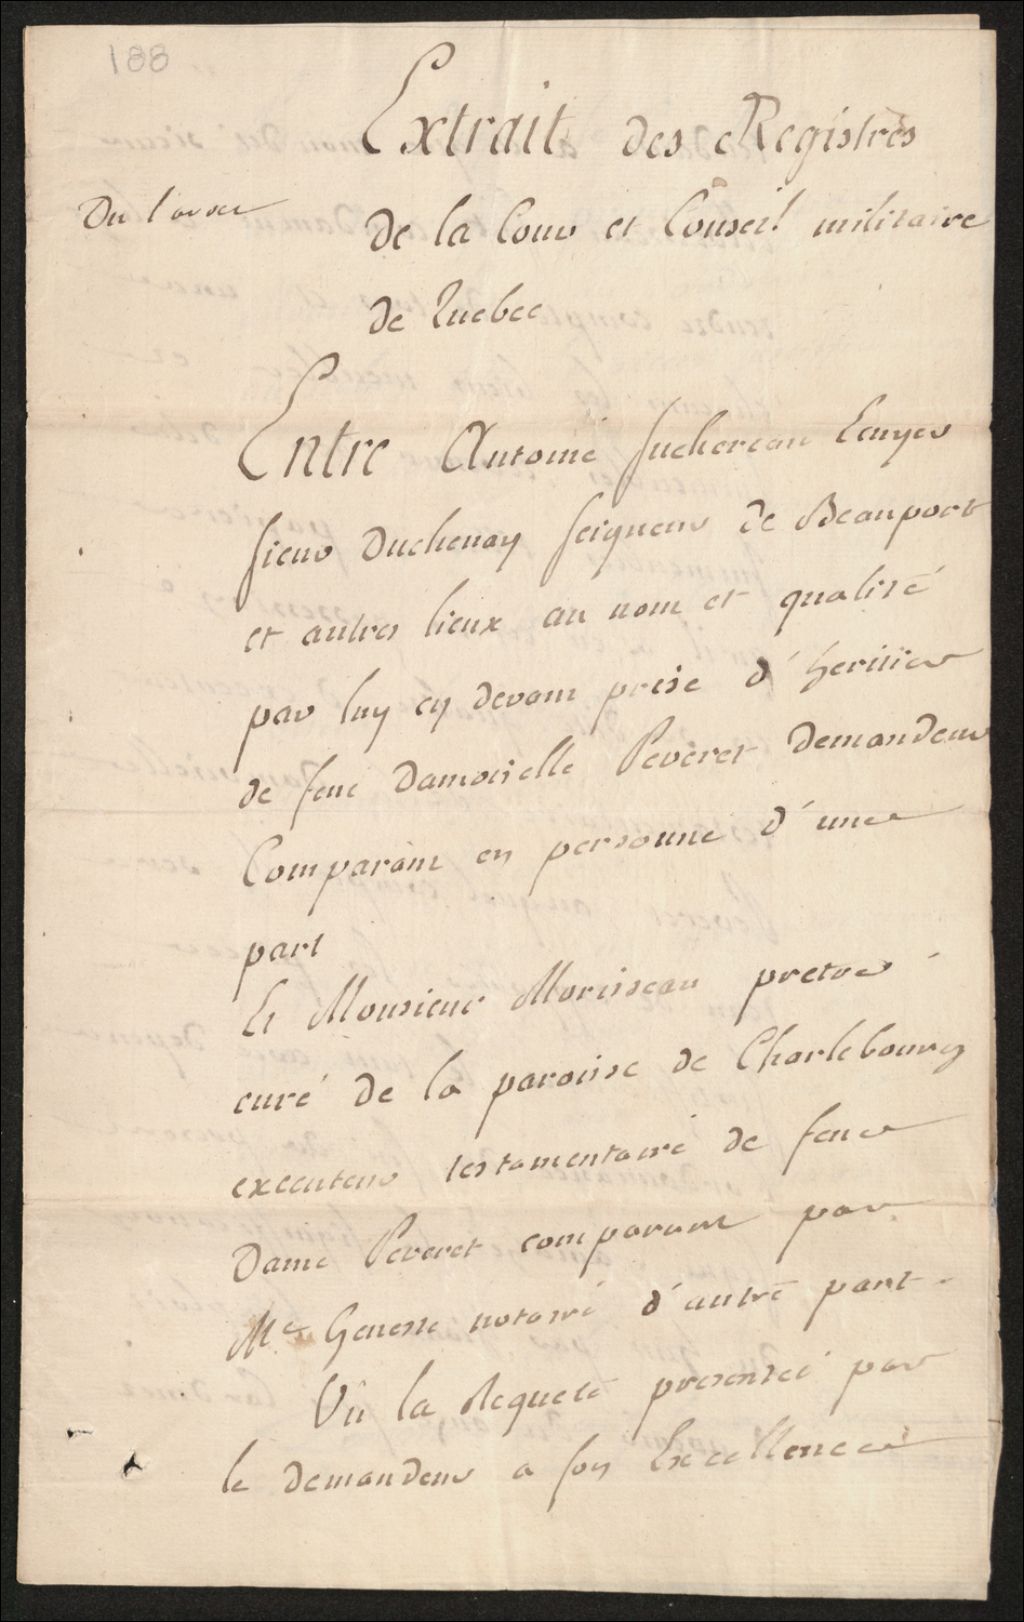 188
Extrait des Registres
Du 1 avril
de la Cour et Conseil militaire
de Quebec
Entre Antoine Juchereau Ecuyer
sieur Duchenay seigneur de Beauport
et autres lieux au nom et qualité
par luy cy devant prise d'heritier
de feue Damoiselle Peveret demandeur
Comparant en personne d'une
part
Et Monsieur Morisseau pretre
curé de la paroisse de Charlebourg
executeur testamentaire de feue
Dame Peveret comparant par
Me Genesse notaire d'autre part
Vû la Requete presentée par
le demandeur a son Excellence